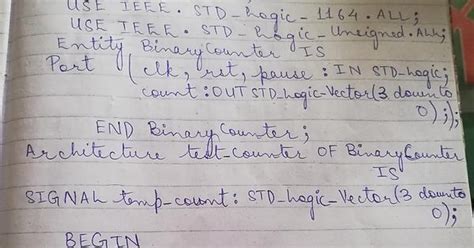 USE IEEE. STD_Logic_1164.ALL;
USE IEEE. STD_Logic_Unsigned.ALL;
Entity BinaryCounter IS
Port (clk, rst, pause : IN STD_Logic;
count : OUT STD_Logic-Vector(3 downto
0););
END BinaryCounter;
Architecture test-counter OF BinaryCounter
IS
SIGNAL temp_count: STD_Logic-Vector(3 downto
0);
BEGIN